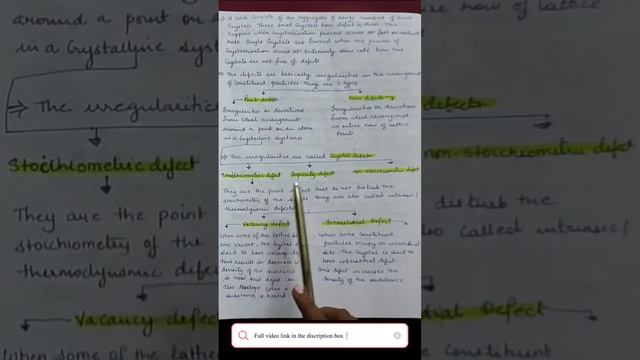 A solid consists of an aggregate of large numbers of small
Crystals. These small Crystals have defect in them. This
happens when Crystallisation process occurs at fast or moderate
rate. Single Crystals are formed when the process of
Crystallisation occurs at extremely slow rate. Even these
Crystals are not free of defects
⇒ The defects are basically irregularities in the arrangement
of Constituent particles. They are 2 types
Point defects
Irregularities or deviations
from ideal arrangement
around a point or an atom
in a Crystalline substance.
Line defects
Irregularities or deviations
from ideal arrangement
in entire row of lattice
Points
⇒ The irregularities are called Crystal defects
Stoichiometric defect Impurity defect non-stoichiometric defect
They are the point defect that do not disturb the
stoichiometry of the They are also called intrinsic/
thermodynamic defects
Vacancy defect
When some of the lattice
are Vacant, the Crystal
said to have vacancy
This result in decrease in
density of the substance
This defect can
also develop when a
substance is heated
Interstitial Defect
When some Constituent
particles occupy an interstitial
site. The Crystal is said to
have interstitial defect.
This defect increases the
density of the substance
around a point or
in a Crystalline syst
⇒ The irregularities
Stoichiometric defect
They are the point
stoichiometry of the
-thermodynamic defect
Vacancy defect
When some of the lattice
row of lattice
defects.
non-stoichiometric defect
disturb the
so called intrinsic/
Defect
Constituent
Full video link in the discription box